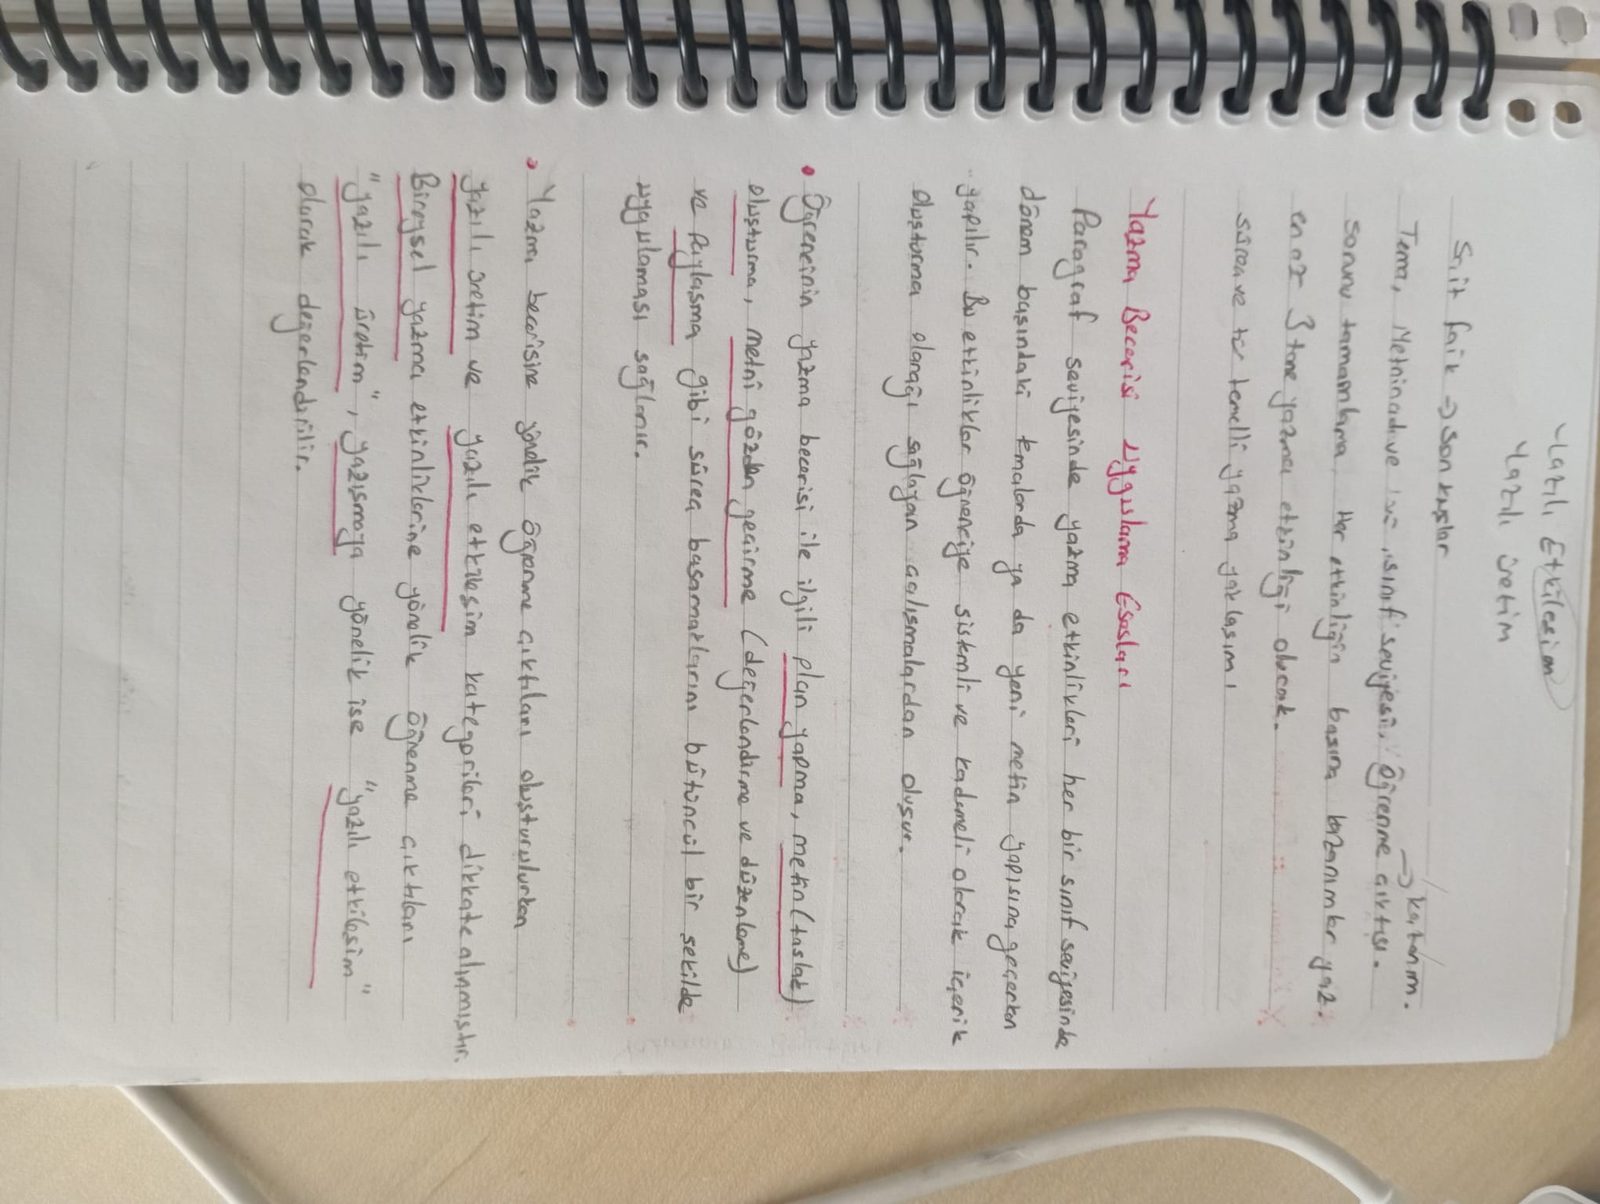 Yazılı Etkileşim
Yazılı üretim
Sait Faik → Son kuşlar
→ kazanım.
Tema, Metnin adı ve , sınıf seviyesi, öğrenme çıktısı.
sorunu tamamlama, Her etkinliğin başına kazanımlar yaz.
en az 3 tane yazma etkinliği olacak.
süreç ve tür temelli yazma yaklaşımı
Yazma Becerisi Uygulama Esasları
Paragraf seviyesinde yazma etkinlikleri her bir sınıf seviyesinde
dönem başındaki temalarda ya da yeni metin yapısına geçerken
yapılır. Bu etkinlikler öğrenciye sistemli ve kademeli olarak içerik
oluşturma olanağı sağlayan çalışmalardan oluşur.
• Öğrencinin yazma becerisi ile ilgili plan yapma, metin (taslak)
oluşturma, metni gözden geçirme (değerlendirme ve düzenleme)
ve paylaşma gibi süreç basamaklarını bütüncül bir şekilde
uygulaması sağlanır.
• Yazma becerisine yönelik öğrenme çıktıları oluşturulurken
yazılı üretim ve yazılı etkileşim kategorileri dikkate alınmıştır.
Bireysel yazma etkinliklerine yönelik öğrenme çıktıları
"yazılı üretim", yazışmaya yönelik ise "yazılı etkileşim"
olarak değerlendirilir.